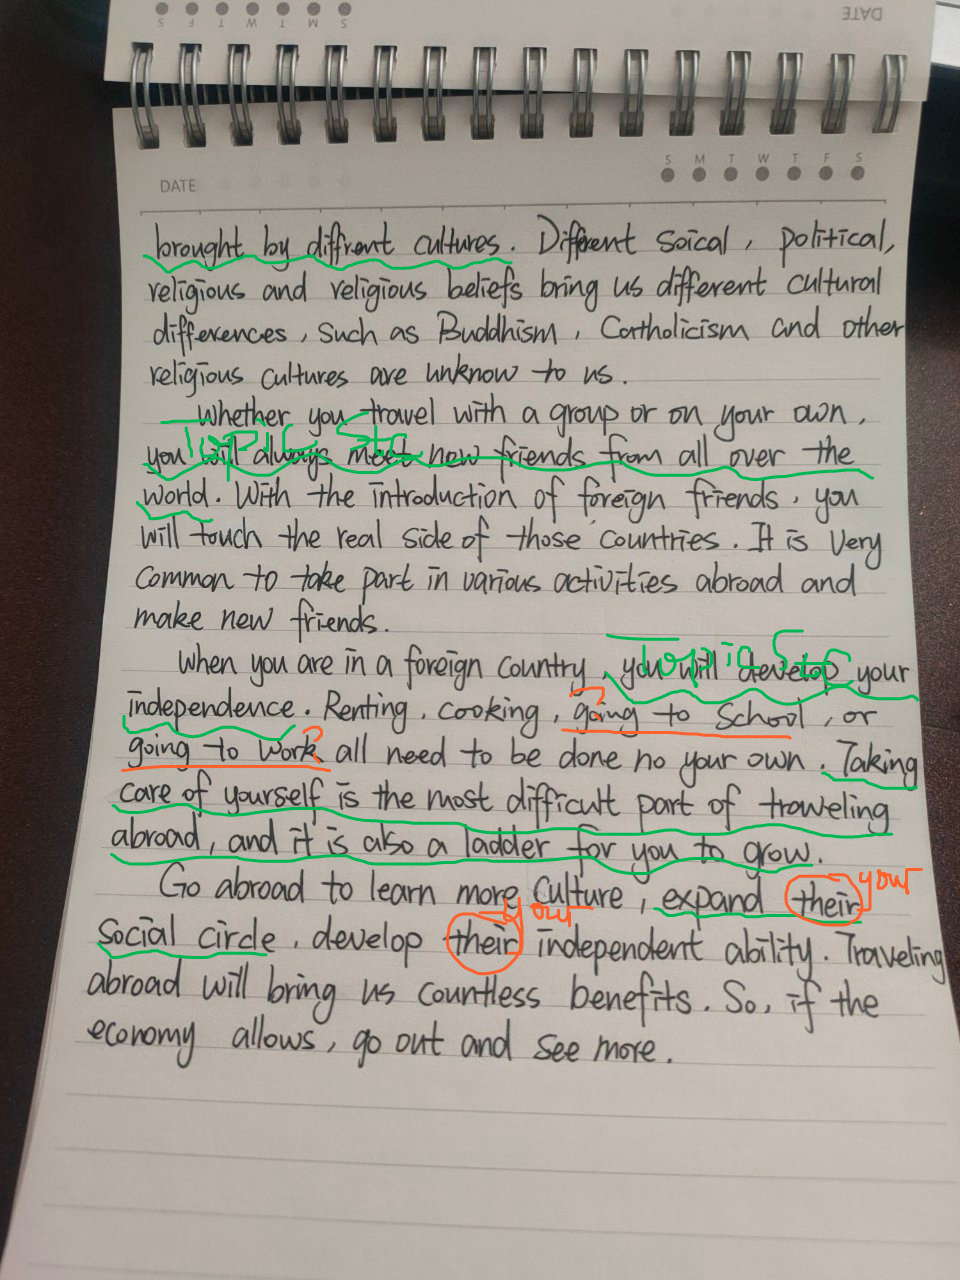 S M T W T F S
DATE
S M T W T F S
DATE
brought by diffrent cultures. Different soical, political,
religious and religious beliefs bring us different cultural
differences, such as Buddhism, Catholicism and other
religious cultures are unknow to us.
Whether you travel with a group or on your own,
Topic Stc
you will always meet new friends from all over the
world. With the introduction of foreign friends, you
will touch the real side of those countries. It is very
common to take part in various activities abroad and
make new friends.
Topic Stc
When you are in a foreign country, you will develop your
independence. Renting, cooking, going to school, or
?
going to work all need to be done no your own. Taking
?
care of yourself is the most difficult part of traweling
abroad, and it is also a ladder for you to grow.
Go abroad to learn more culture, expand their
your
social circle, develop their independent ability. Traveling
your
abroad will bring us countless benefits. So, if the
economy allows, go out and see more.